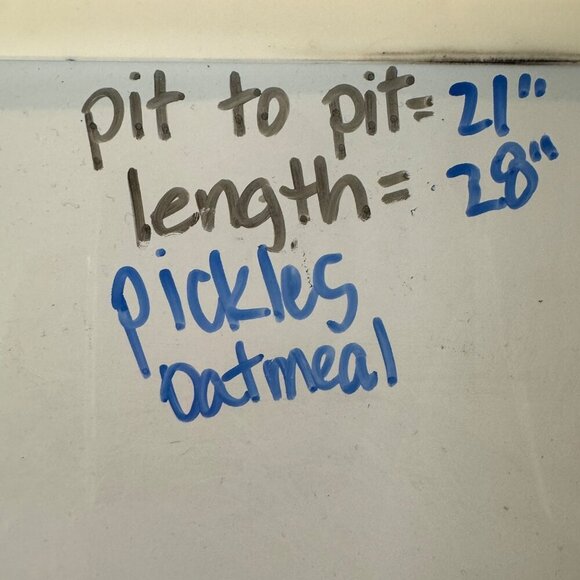 pit to pit= 21"
length= 28"
pickles
oatmeal